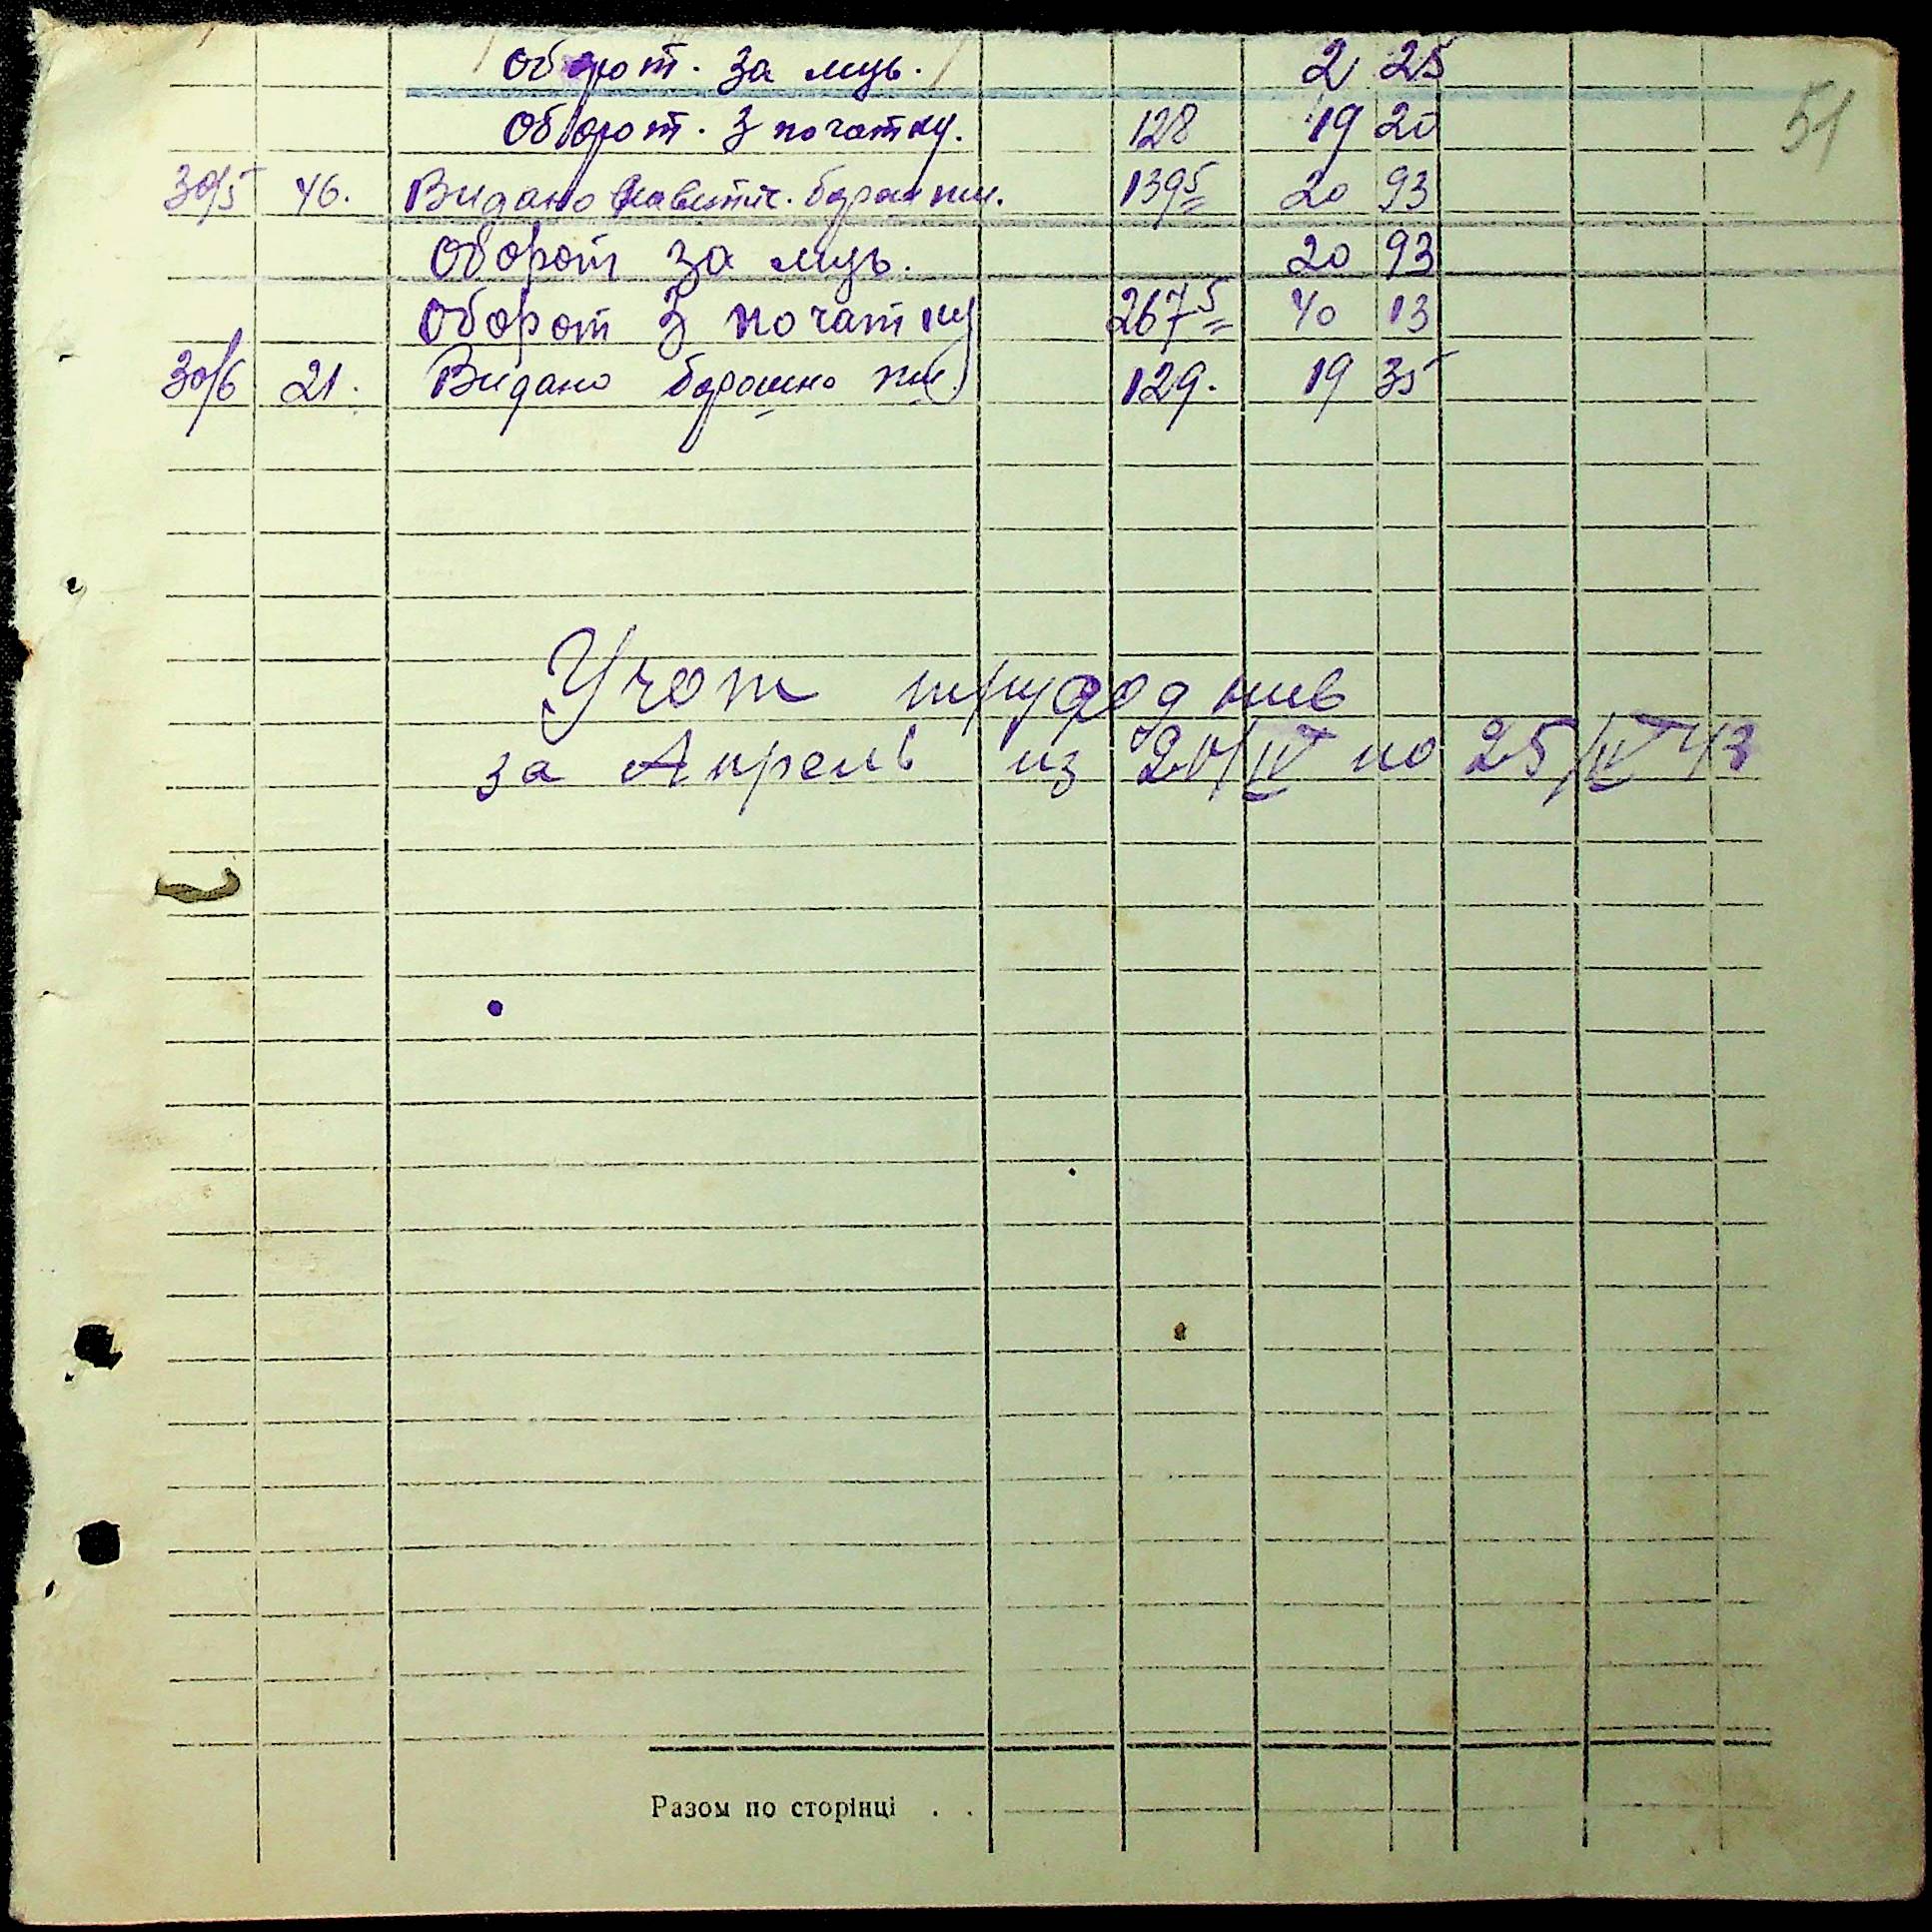 Оборот. за мць. 2 25
51
Оборот. З початку. 128 19 20
30/5 46. Видано авитніс. борошн пш. 139 5 20 93
Оборот за мць. 20 93
Оборот З початку 267 5 40 13
30/6 21. Видано борошно пш. 129. 19 35
Учот трудоднив
за Апрель из 20/IV по 25/IV 43
Разом по сторінці . .